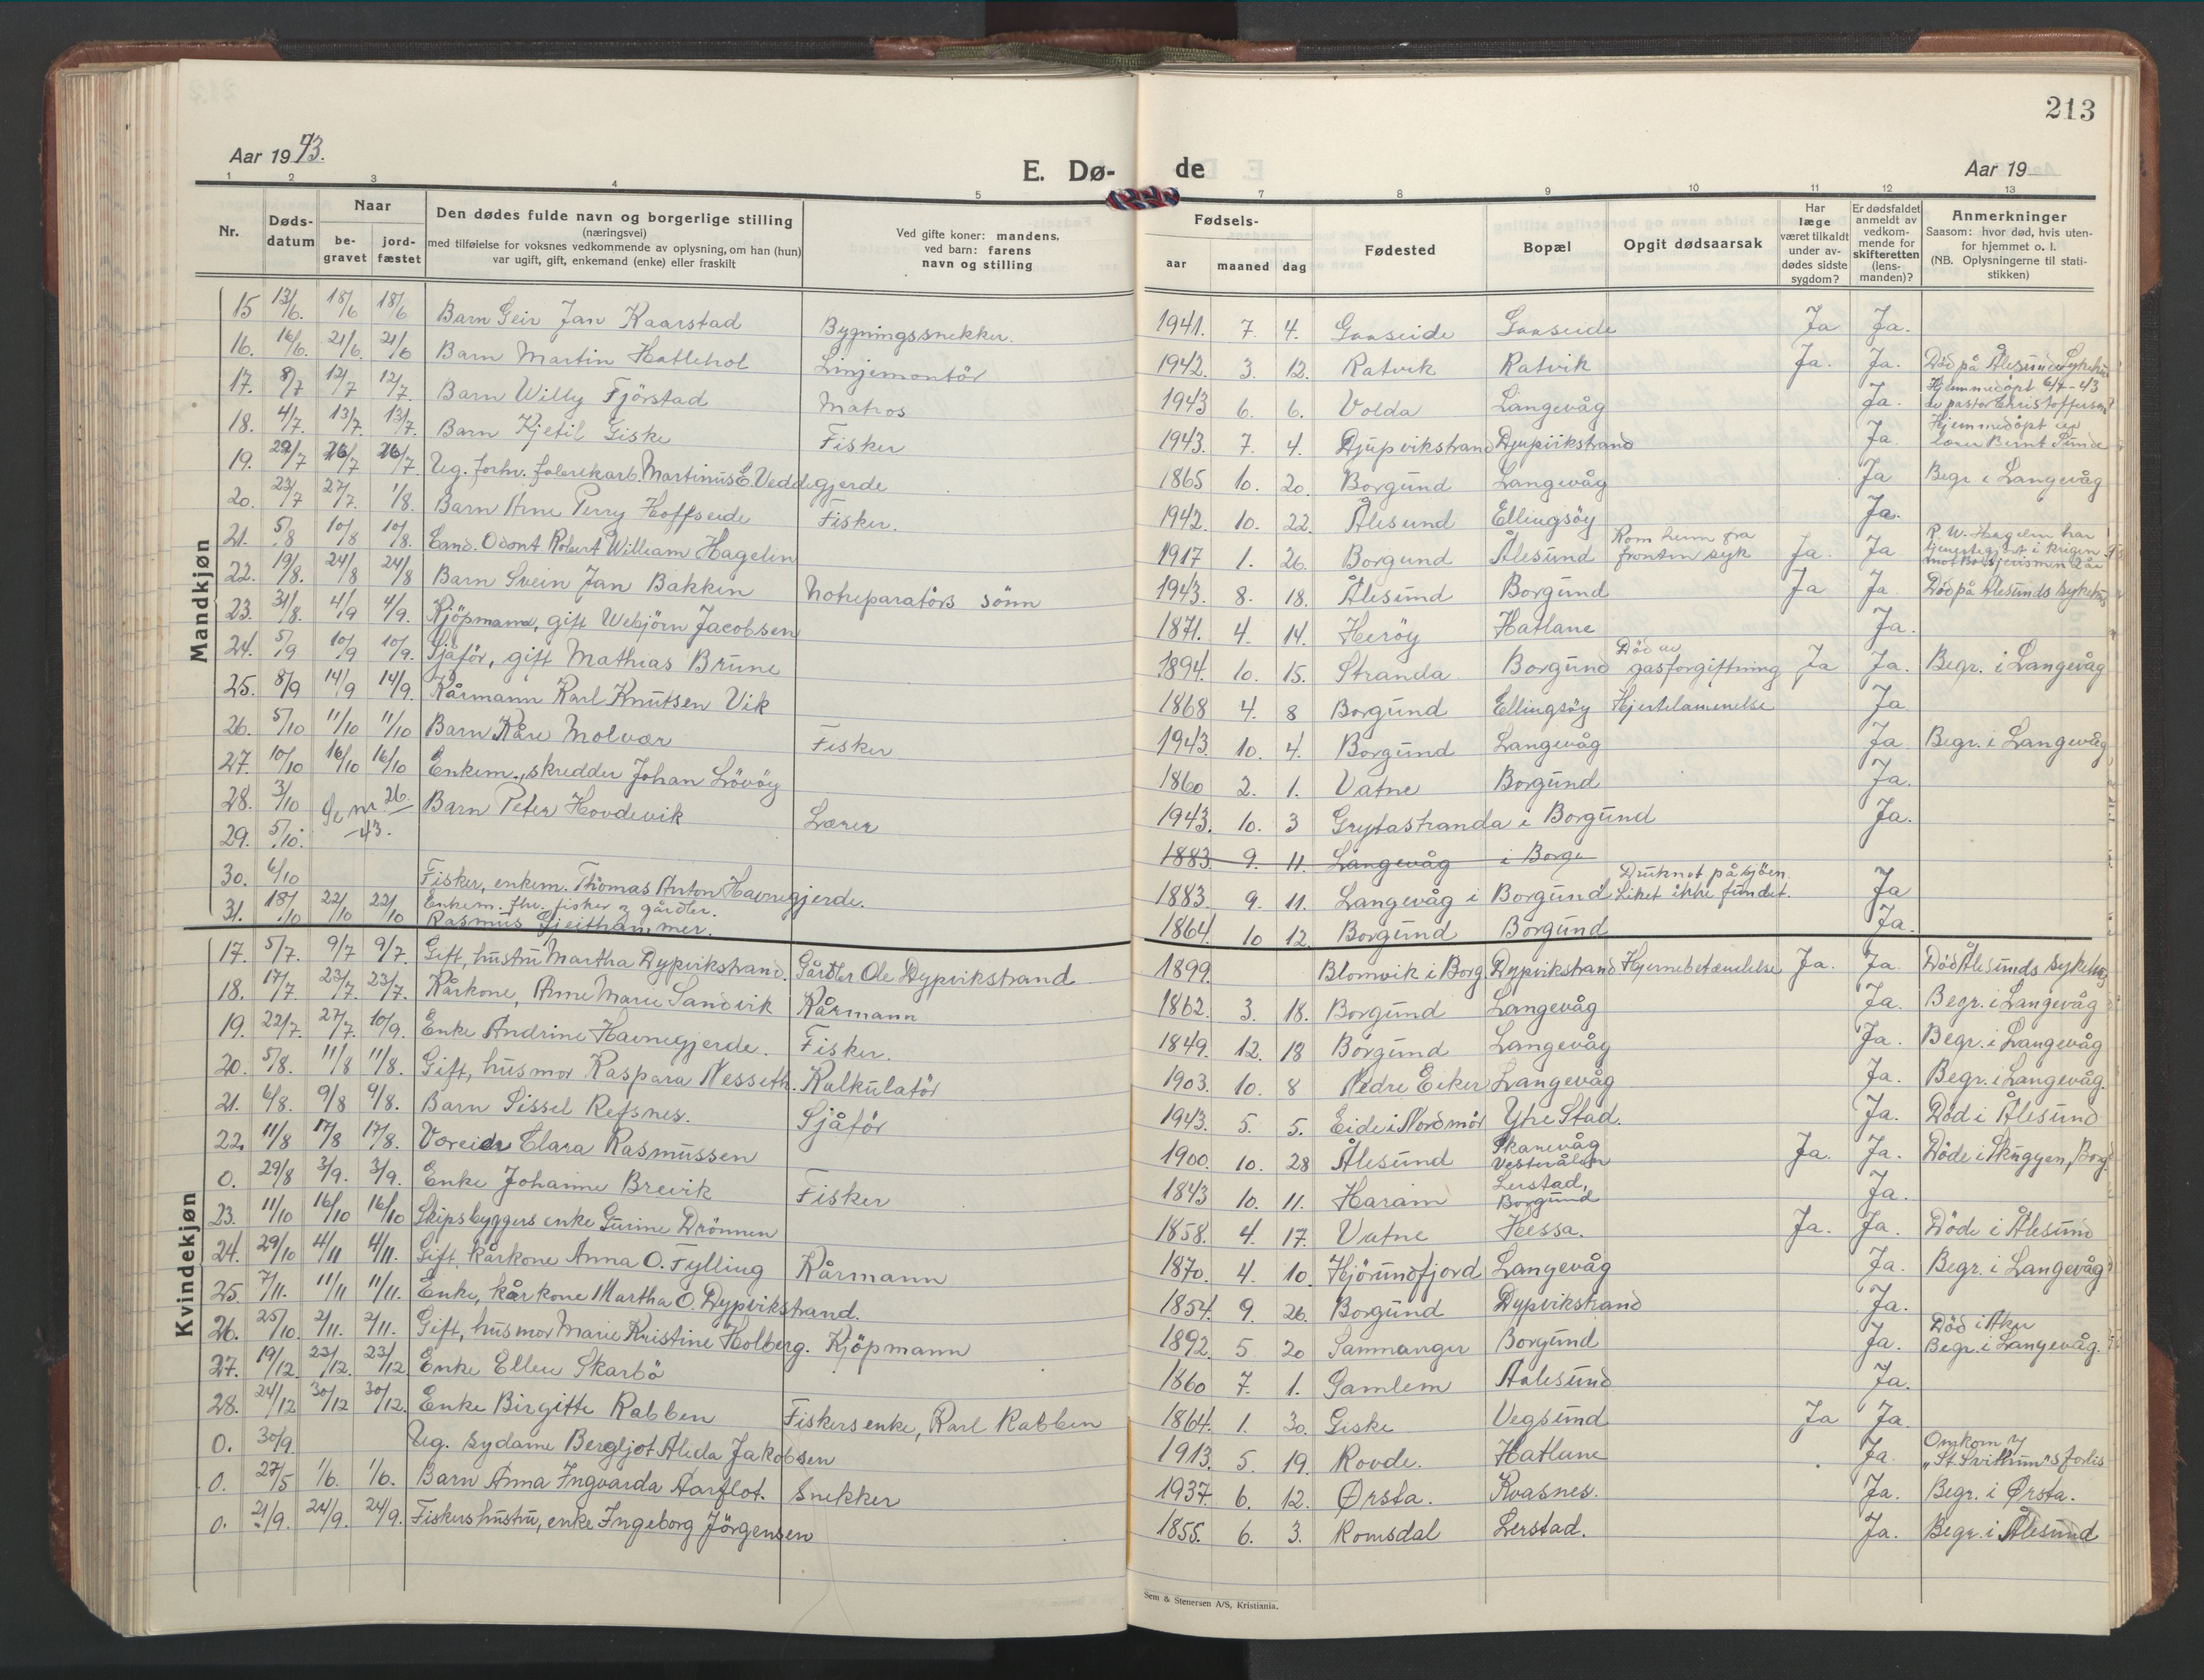 213
Aar 1943.
E. Dø-
de
Aar 19
1 2 3 4 5 7 8 9 10 11 12 13
Nr.
Døds-
datum
Naar
be-
gravet
jord-
fæstet
Den dødes fulde navn og borgerlige stilling
(næringsvei)
med tilføielse for voksnes vedkommende av oplysning, om han (hun)
var ugift, gift, enkemand (enke) eller fraskilt
Ved gifte koner: mandens,
ved barn: farens
navn og stilling
Fødsels-
aar maaned dag
Fødested
Bopæl
Opgit dødsaarsak
Har
læge
været tilkaldt
under av-
dødes sidste
sygdom?
Er dødsfaldet
anmeldt av
vedkom-
mende for
skifteretten
(lens-
manden)?
Anmerkninger
Saasom: hvor død, hvis uten-
for hjemmet o. l.
(NB. Oplysningerne til stati-
stikken)
Mandkjøn
15 13/6. 18/6 18/6 Barn Geir Jan Kaarstad Bygningssnekker. 1941. 7. 4. Gaaseide Gaaseide Ja Ja.
16. 16/6. 21/6. 21/6 Barn Martin Hatlehol Linjemontör 1942. 3. 12. Ratvik Ratvik Ja. Ja. Död på Ålesunds Sykehus
17. 8/7 12/7 12/7. Barn Willy Fjörstad Matros 1943 6. 6. Volda Langevåg Ja. Hjemmedöpt 6/7-43 av pastor Christoffersen
18. 4/7. 13/7. 13/7. Barn Kjetil Giske Fisker 1943. 7. 4. Djupvikstrand Djupvikstrand Ja. Hjemmedöpt av lærer Bernt Sunde
19. 22/7 26/7 26/7. Ug. forhv. fabrikkarb. Martinus E. Veddegjerde 1865 10. 20. Borgund Langevåg Ja Begr. i Langevåg
20. 23/7 27/7. 1/8. Barn Arne Perry Hoffseide Fisker. 1942. 10. 22. Ålesund Ellingsöy Ja.
21. 5/8 10/8 10/8. Cand. Odont Robert William Hagelin 1917 1. 26. Borgund Ålesund Kom hjem fra fronten syk Ja. Ja R. W. Hagelin har tjenestegjort i krigen mot Bolsjevismen
22. 19/8. 24/8 24/8 Barn Svein Jan Bakken Notreparatörs sönn 1943. 8. 18. Ålesund Borgund Ja Ja Död på Ålesunds sykehus
23. 31/8. 4/9 4/9. Kjöpmann, gift Webjörn Jacobsen 1871. 4. 14. Heröy Hatlane Ja.
24. 5/9 10/9 10/9. Sjåför, gift Mathias Brune 1894. 10. 15. Stranda Borgund Död av gasforgiftning Ja Ja. Begr. i Langevåg
25. 8/9 14/9 14/9. Kårmann Karl Knutsen Vik 1868 4. 8 Borgund Ellingsöy Hjertelammelse Ja
26. 5/10 11/10 11/10 Barn Kåre Molvær Fisker 1943. 10. 4. Borgund Langevåg Ja. Begr. i Langevåg
27. 10/10 16/10 16/10 Enkem., skredder Johan Lövöy 1860 2. 1. Vatne Borgund Ja.
28. 3/10 Barn Peter Hovdevik Lærer 1943. 10. 3 Grytastranda i Borgund Ja.
29. 5/10. Se nr 26. -43. 1883. 9. 11. Langevåg i Borgu
30. 6/10 Fisker, enkem. Thomas Anton Havnegjerde. 1883. 9. 11. Langevåg i Borgund Druknet på sjöen. Liket ikke fundet. Ja
31. 18/10 22/10 22/10 Enkem. fhv. fisker & gårdbr. Rasmus Gjeithammer. 1864. 10 12. Borgund Borgund Ja.
Kvindekjøn
17. 5/7. 9/7 9/7. Gift, hustru Martha Dypvikstrand. Gårdbr Ole Dypvikstrand 1899. Blomvik i Borg. Dypvikstrand Hjernebetændelse Ja. Ja. Död Ålesunds sykehus
18. 17/7. 23/7. 23/7. Kårkone, Anne Marie Sandvik Kårmann 1862. 3. 18. Borgund Langevåg Ja. Begr. i Langevåg
19. 22/7. 27/7. 10/9. Enke Andrine Havnegjerde. Fisker. 1849. 12. 18 Borgund Langevåg Ja. Begr. i Langevåg
20. 5/8. 11/8 11/8. Gift, husmor Kaspara Nesseth. Kalkulatör 1903. 10. 8 Nedre Eiker Langevåg Ja. Begr. i Langevåg.
21. 6/8. 9/8 9/8. Barn Sissel Refsnes. Sjåför 1943. 5. 5. Eide i Nordmör Ytre Stad. Ja. Död i Ålesund
22. 11/8 17/8 17/8. Clara Rasmussen 1900. 10. 28 Ålesund Skanevåg Vesterålen Ja. Ja. Döde i Skuggen, Borg.
0. 29/8 3/9. 3/9. Enke Johanne Brevik Fisker 1843 10. 11. Haram Lerstad, Borgund Ja.
23. 11/10 16/10 16/10 Skipsbyggers enke Gurine Drönnen 1858. 4. 17. Vatne Hessa. Ja. Ja. Döde i Ålesund
24. 29/10 4/11 4/11. Gift, kårkone Anna O. Fylling Kårmann 1870. 4. 10. Hjörundfjord Langevåg Ja. Begr. i Langevåg
25. 7/11. 11/11 11/11. Enke, kårkone Martha O. Dypvikstrand. 1854. 9. 26. Borgund Dypvikstrand Ja.
26. 25/10. 2/11. 2/11. Gift, husmor Marie Kristine Holberg. Kjöpmann 1892. 5 20 Sammanger Borgund Ja. Död i Aker Begr. i Langevåg.
27. 19/12. 23/12. 23/12 Enke Ellen Skarbö 1860 7. 1. Gamlem Aalesund Ja.
28. 24/12 30/12 30/12. Enke Birgitte Rabben Fiskers enke, Karl Rabben 1864. 1. 30. Giske Vegsund Ja Ja.
0. 30/9. Ug. sydame Bergljot Alida Jakobsen 1913. 5. 19. Rovde. Hatlane Ja. Omkom v/ "St. Svithun"s forlis
0. 27/5 1/6. 1/6. Barn Anna Ingvarda Aarflot. Snekker 1937. 6. 12. Ørsta. Kvasnes. Ja. Begr. i Ørsta.
0. 21/9. 24/9. 24/9. Fiskers hustru, enke Ingeborg Jörgensen 1855. 6. 3. Romsdal Lerstad. Ja. Begr. i Ålesund
Sem & Stenersen A/S, Kristiania.